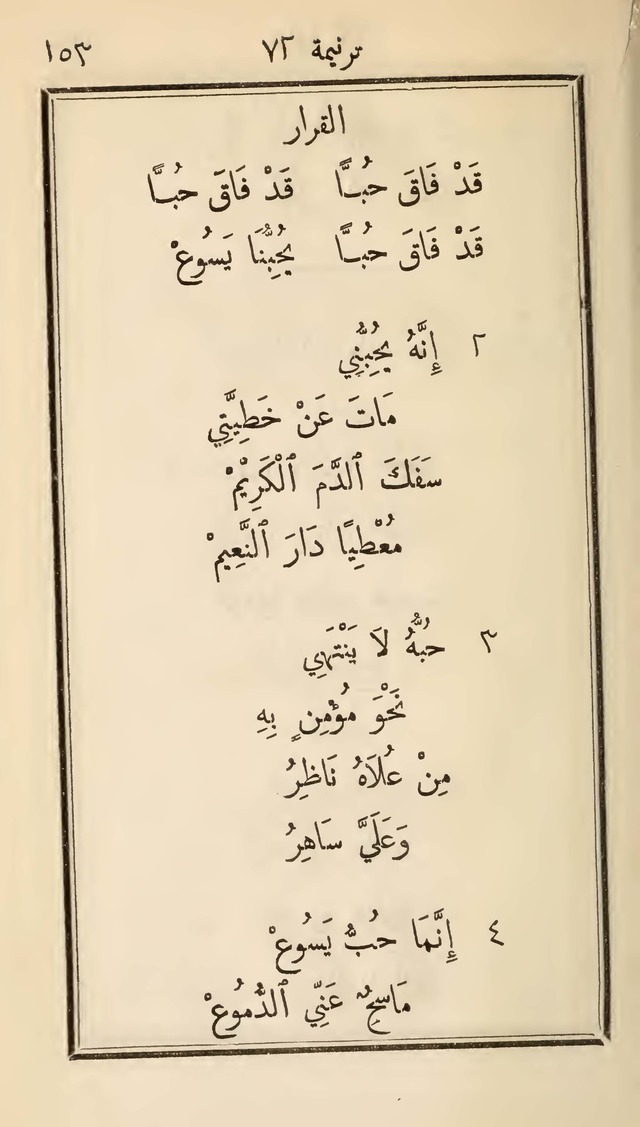 ترنيمة ٧٢ ١٥٣
القرار
قَدْ فَاقَ حُبًّا قَدْ فَاقَ حُبًّا
قَدْ فَاقَ حُبًّا يُحِبُّنَا يَسُوعْ
٢ إِنَّهُ يُحِبُّنِي
مَاتَ عَنْ خَطِيَّتِي
سَفَكَ ٱلدَّمَ ٱلْكَرِيْمْ
مُعْطِيًا دَارَ ٱلنَّعِيمْ
٣ حُبُّهُ لاَ يَنْتَهِي
نَحْوَ مُؤْمِنٍ بِهِ
مِنْ عُلاَهُ نَاظِرُ
وَعَلَيَّ سَاهِرُ
٤ إِنَّمَا حُبُّ يَسُوعْ
مَاسِحٌ عَنِّي ٱلدُّمُوعْ